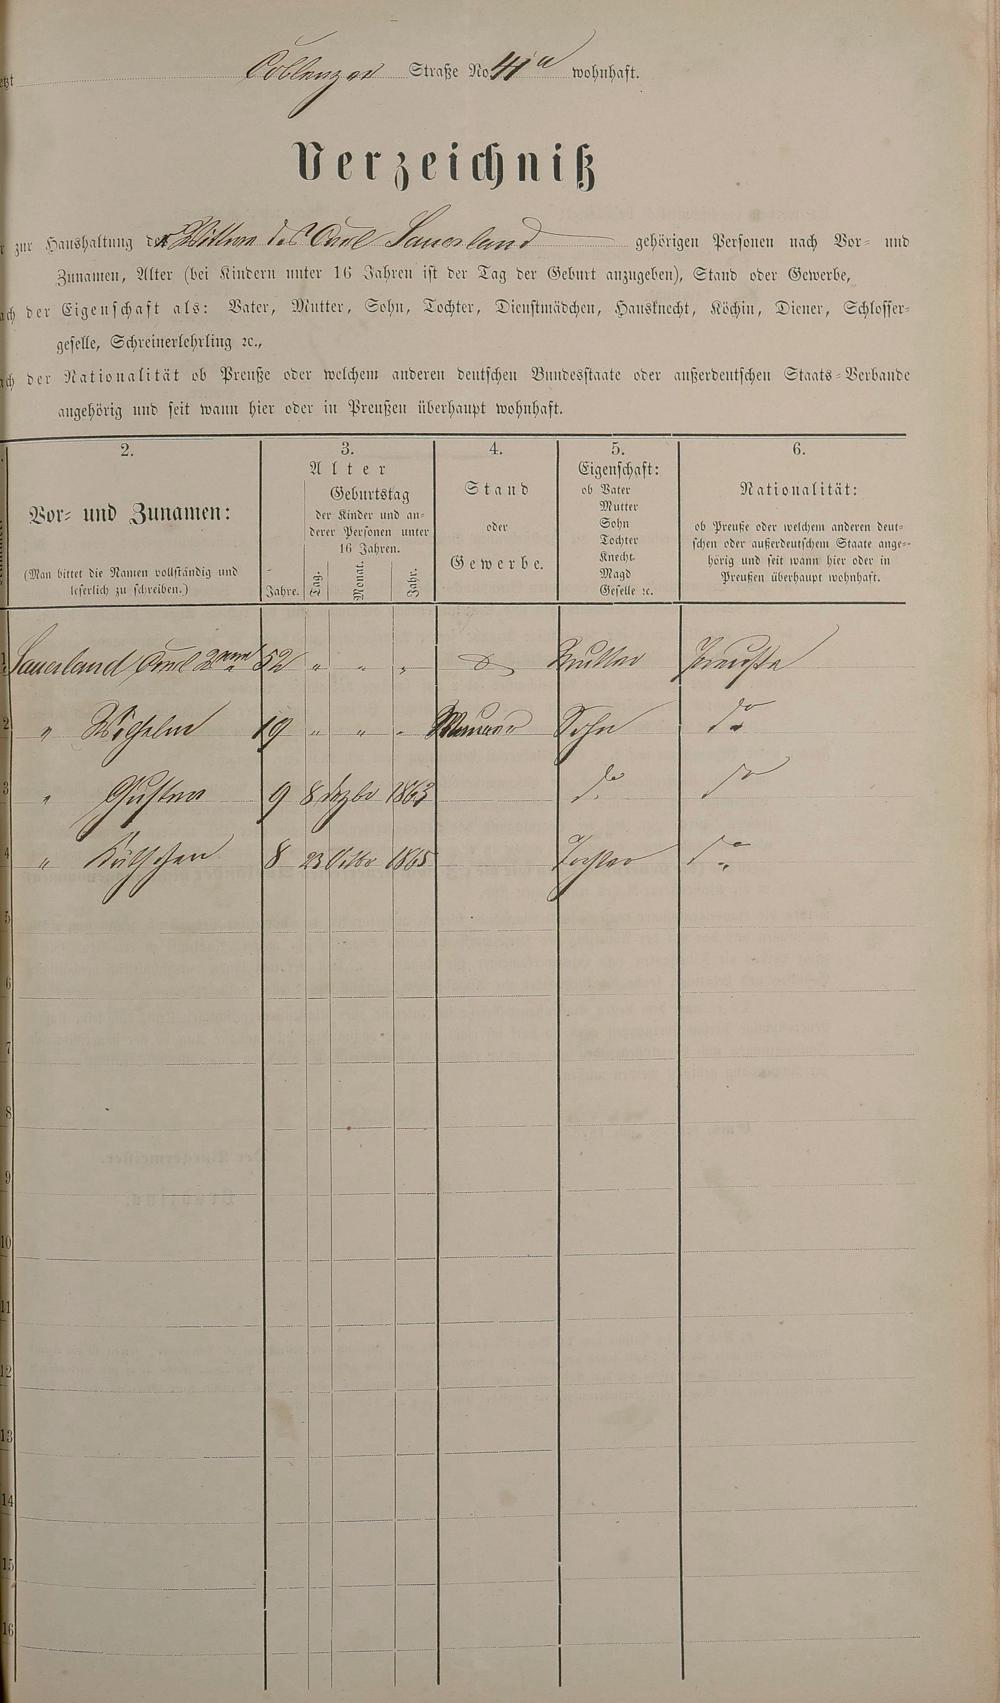 etzt Coblenzer Straße No 41a wohnhaft.
Verzeichniß
r zur Haushaltung der Wittwe des Carl Sauerland gehörigen Personen nach Vor- und
Zunamen, Alter (bei Kindern unter 16 Jahren ist der Tag der Geburt anzugeben), Stand oder Gewerbe,
ach der Eigenschaft als: Vater, Mutter, Sohn, Tochter, Dienstmädchen, Hausknecht, Köchin, Diener, Schlosser-
geselle, Schreinerlehrling ꝛc.,
ach der Nationalität ob Preuße oder welchem anderen deutschen Bundesstaate oder außerdeutschen Staats-Verbande
angehörig und seit wann hier oder in Preußen überhaupt wohnhaft.
2.
Vor- und Zunamen:
(Man bittet die Namen vollständig und
leserlich zu schreiben.)
3.
Alter
Geburtstag
der Kinder und an-
derer Personen unter
16 Jahren.
Jahre. Tag. Monat. Jahr.
4.
Stand
oder
Gewerbe.
5.
Eigenschaft:
ob Vater
Mutter
Sohn
Tochter
Knecht
Magd
Geselle ꝛc.
6.
Nationalität:
ob Preuße oder welchem anderen deut-
schen oder außerdeutschem Staate ange-
hörig und seit wann hier oder in
Preußen überhaupt wohnhaft.
1 Sauerland Carl 52 " " " Mutter Preuße
2 " Wilhelm 19 " " " Maurer Sohn do
3 " Gustav 9 8 dezbr 1863 do do
4 " 8 23 Octbr 1865 Tochter do
5
6
7
8
9
10
11
12
13
14
15
16